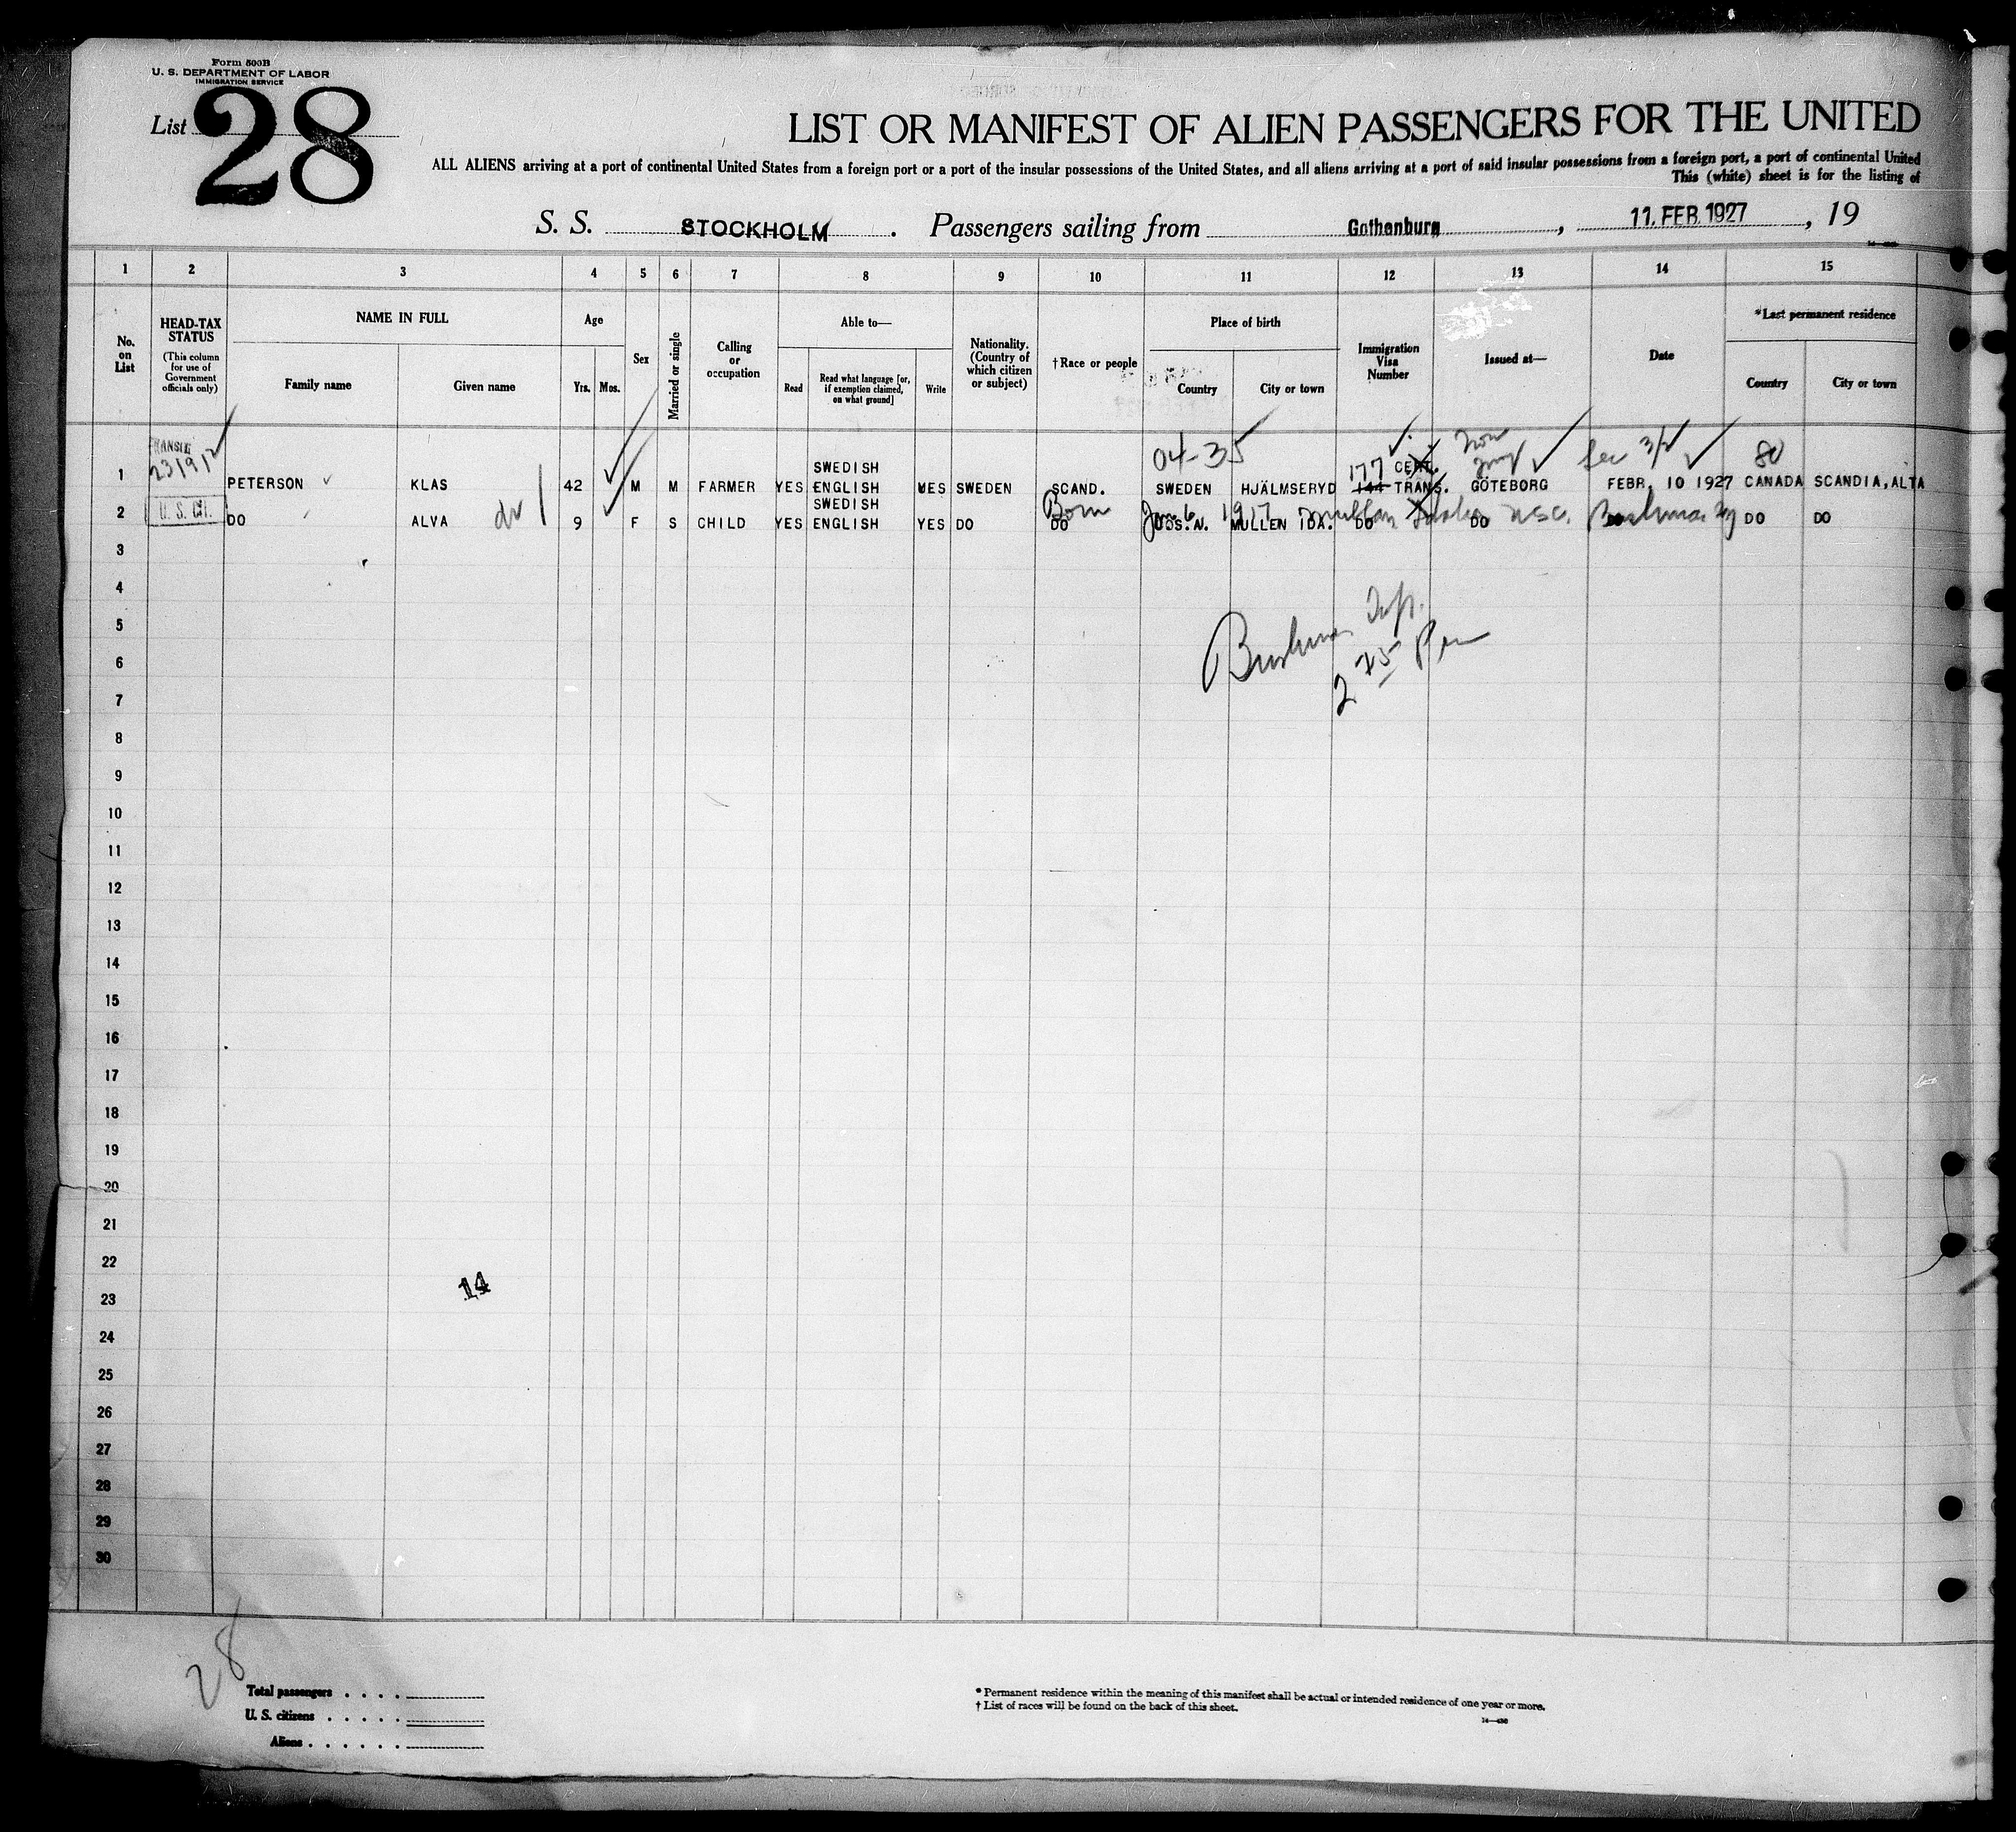 Form 500B
U. S. DEPARTMENT OF LABOR
IMMIGRATION SERVICE
List 28
LIST OR MANIFEST OF ALIEN PASSENGERS FOR THE UNITED
ALL ALIENS arriving at a port of continental United States from a foreign port or a port of the insular possessions of the United States, and all aliens arriving at a port of said insular possessions from a foreign port, a port of continental United
This (white) sheet is for the listing of
S. S. STOCKHOLM . Passengers sailing from Gothenburg , 11. FEB. 1927 , 19
1 2 3 4 5 6 7 8 9 10 11 12 13 14 15
No. on List
HEAD-TAX STATUS
(This column for use of Government officials only)
NAME IN FULL
Family name
Given name
Age
Yrs. Mos.
Sex
Married or single
Calling or occupation
Able to—
Read
Read what language [or, if exemption claimed, on what ground]
Write
Nationality. (Country of which citizen or subject)
†Race or people
Place of birth
Country
City or town
Immigration Visa Number
Issued at—
Date
*Last permanent residence
Country
City or town
04-35
177 CERT.
80
1 PETERSON KLAS 42 M M FARMER YES SWEDISH ENGLISH YES SWEDEN SCAND. SWEDEN HJÄLMSERYD 144 TRANS. GÖTEBORG FEBR. 10 1927 CANADA SCANDIA, ALTA
U. S. CIT.
Born Jan 6, 1917
2 DO ALVA 9 F S CHILD YES SWEDISH ENGLISH YES DO DO U.S.A. MULLEN IDA. DO DO DO DO DO
3
4
5
6
7
8
9
10
11
12
13
14
15
16
17
18
19
20
21
22
14
23
24
25
26
27
28
29
30
28
Total passengers
U. S. citizens
Aliens
* Permanent residence within the meaning of this manifest shall be actual or intended residence of one year or more.
† List of races will be found on the back of this sheet.